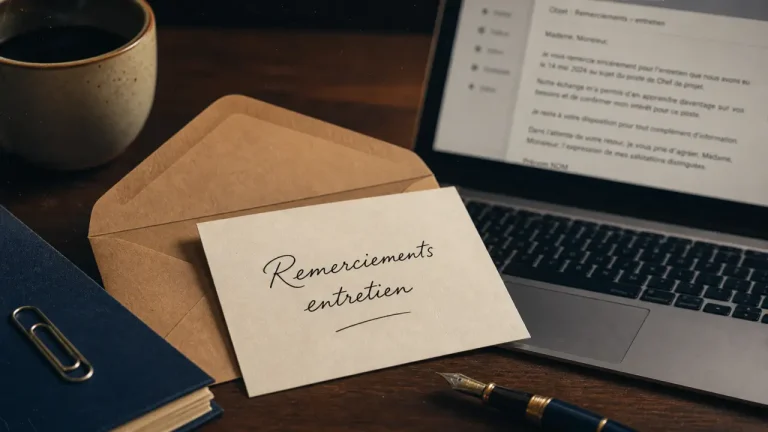 Remerciements
entretien
Objet : Remerciements - entretien
Madame, Monsieur,
Je vous remercie sincèrement pour l'entretien que nous avons eu
le 14 mai 2024 au sujet du poste de Chef de projet.
Notre échange m'a permis d'en apprendre davantage sur vos
besoins et de confirmer mon intérêt pour ce poste.
Je reste à votre disposition pour tout complément d'information.
Dans l'attente de votre retour, je vous prie d'agréer, Madame,
Monsieur, l'expression de mes salutations distinguées.
Prénom NOM